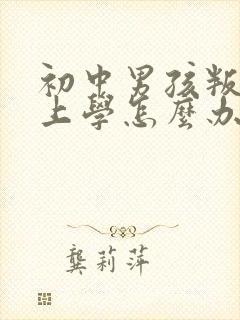 初中男孩叛
上學怎麼办
龔莉萍